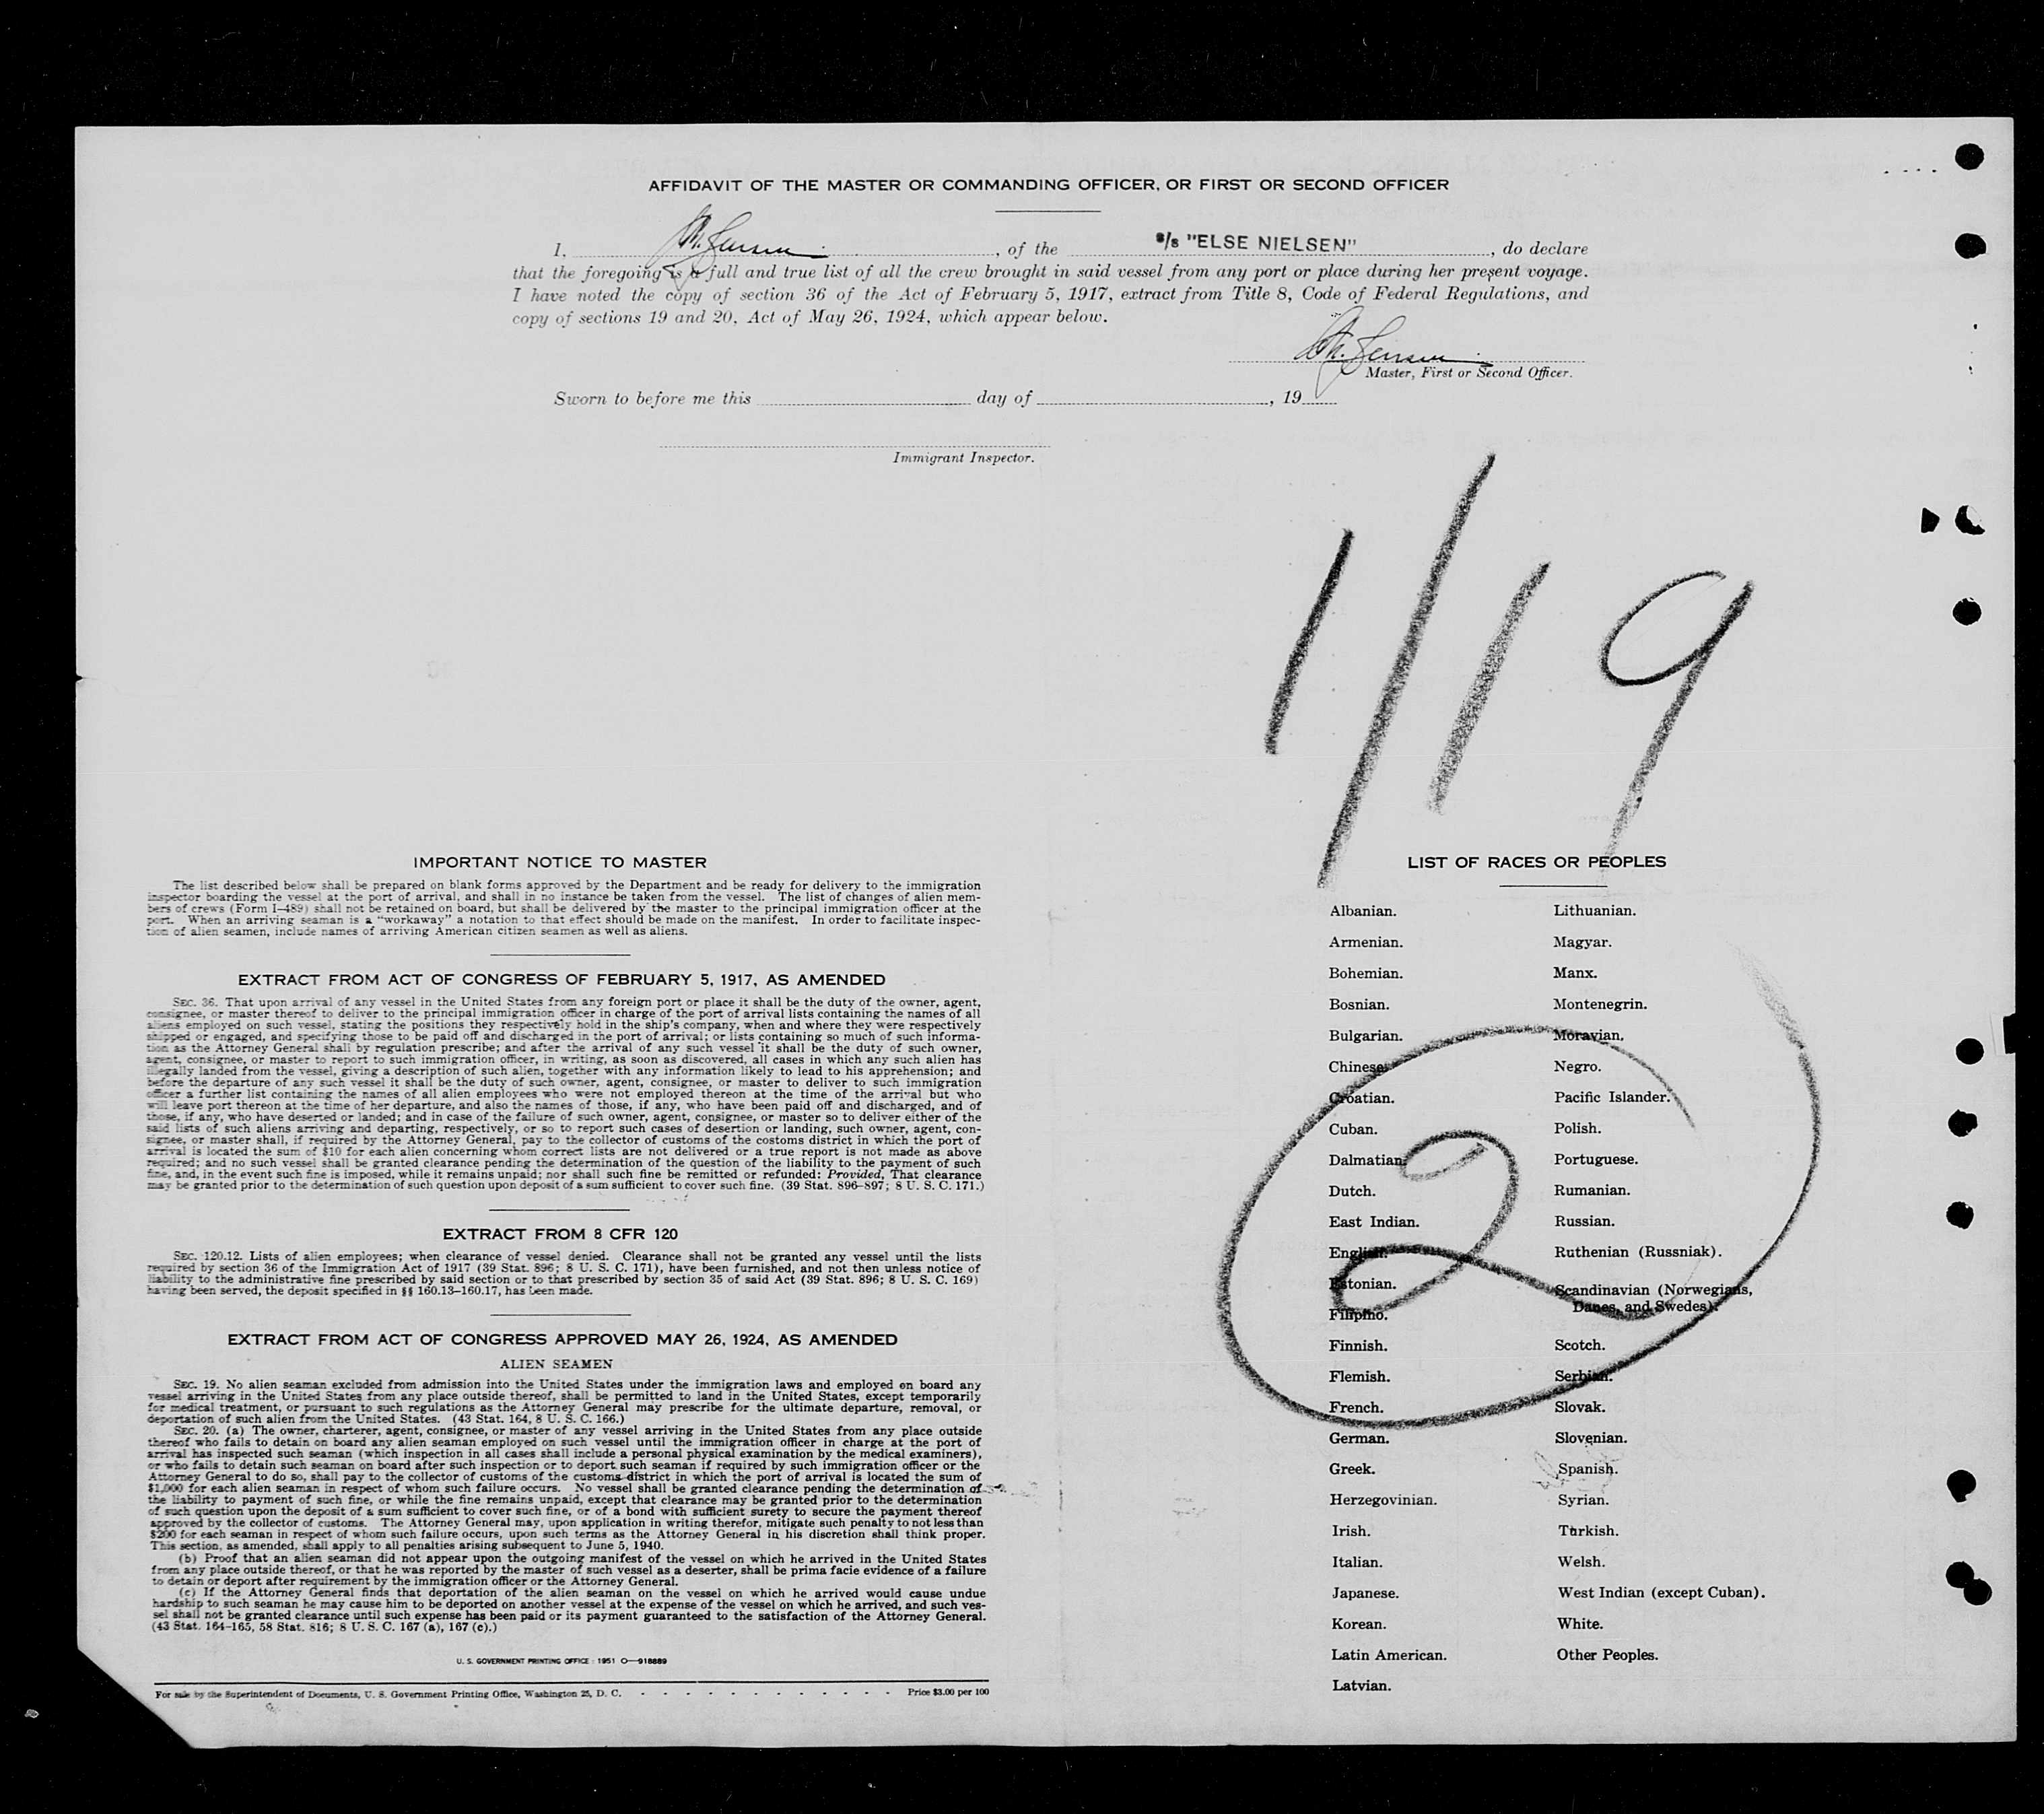 AFFIDAVIT OF THE MASTER OR COMMANDING OFFICER, OR FIRST OR SECOND OFFICER
I, Jensen, of the s/s "ELSE NIELSEN", do declare
that the foregoing is a full and true list of all the crew brought in said vessel from any port or place during her present voyage.
I have noted the copy of section 36 of the Act of February 5, 1917, extract from Title 8, Code of Federal Regulations, and
copy of sections 19 and 20, Act of May 26, 1924, which appear below.
Jensen
Master, First or Second Officer.
Sworn to before me this day of , 19
Immigrant Inspector.
1/19
IMPORTANT NOTICE TO MASTER
The list described below shall be prepared on blank forms approved by the Department and be ready for delivery to the immigration
inspector boarding the vessel at the port of arrival, and shall in no instance be taken from the vessel. The list of changes of alien mem-
bers of crews (Form I-489) shall not be retained on board, but shall be delivered by the master to the principal immigration officer at the
port. When an arriving seaman is a "workaway" a notation to that effect should be made on the manifest. In order to facilitate inspec-
tion of alien seamen, include names of arriving American citizen seamen as well as aliens.
EXTRACT FROM ACT OF CONGRESS OF FEBRUARY 5, 1917, AS AMENDED
SEC. 36. That upon arrival of any vessel in the United States from any foreign port or place it shall be the duty of the owner, agent,
consignee, or master thereof to deliver to the principal immigration officer in charge of the port of arrival lists containing the names of all
aliens employed on such vessel, stating the positions they respectively hold in the ship's company, when and where they were respectively
shipped or engaged, and specifying those to be paid off and discharged in the port of arrival; or lists containing so much of such informa-
tion as the Attorney General shall by regulation prescribe; and after the arrival of any such vessel it shall be the duty of such owner,
agent, consignee, or master to report to such immigration officer, in writing, as soon as discovered, all cases in which any such alien has
illegally landed from the vessel, giving a description of such alien, together with any information likely to lead to his apprehension; and
before the departure of any such vessel it shall be the duty of such owner, agent, consignee, or master to deliver to such immigration
officer a further list containing the names of all alien employees who were not employed thereon at the time of the arrival but who
will leave port thereon at the time of her departure, and also the names of those, if any, who have been paid off and discharged, and of
those, if any, who have deserted or landed; and in case of the failure of such owner, agent, consignee, or master so to deliver either of the
said lists of such aliens arriving and departing, respectively, or so to report such cases of desertion or landing, such owner, agent, con-
signee, or master shall, if required by the Attorney General, pay to the collector of customs of the costoms district in which the port of
arrival is located the sum of $10 for each alien concerning whom correct lists are not delivered or a true report is not made as above
required; and no such vessel shall be granted clearance pending the determination of the question of the liability to the payment of such
fine, and, in the event such fine is imposed, while it remains unpaid; nor shall such fine be remitted or refunded: Provided, That clearance
may be granted prior to the determination of such question upon deposit of a sum sufficient to cover such fine. (39 Stat. 896-897; 8 U. S. C. 171.)
EXTRACT FROM 8 CFR 120
SEC. 120.12. Lists of alien employees; when clearance of vessel denied. Clearance shall not be granted any vessel until the lists
required by section 36 of the Immigration Act of 1917 (39 Stat. 896; 8 U. S. C. 171), have been furnished, and not then unless notice of
liability to the administrative fine prescribed by said section or to that prescribed by section 35 of said Act (39 Stat. 896; 8 U. S. C. 169)
having been served, the deposit specified in §§ 160.13-160.17, has been made.
EXTRACT FROM ACT OF CONGRESS APPROVED MAY 26, 1924, AS AMENDED
ALIEN SEAMEN
SEC. 19. No alien seaman excluded from admission into the United States under the immigration laws and employed on board any
vessel arriving in the United States from any place outside thereof, shall be permitted to land in the United States, except temporarily
for medical treatment, or pursuant to such regulations as the Attorney General may prescribe for the ultimate departure, removal, or
deportation of such alien from the United States. (43 Stat. 164, 8 U. S. C. 166.)
SEC. 20. (a) The owner, charterer, agent, consignee, or master of any vessel arriving in the United States from any place outside
thereof who fails to detain on board any alien seaman employed on such vessel until the immigration officer in charge at the port of
arrival has inspected such seaman (which inspection in all cases shall include a personal physical examination by the medical examiners),
or who fails to detain such seaman on board after such inspection or to deport such seaman if required by such immigration officer or the
Attorney General to do so, shall pay to the collector of customs of the customs district in which the port of arrival is located the sum of
$1,000 for each alien seaman in respect of whom such failure occurs. No vessel shall be granted clearance pending the determination of
the liability to payment of such fine, or while the fine remains unpaid, except that clearance may be granted prior to the determination
of such question upon the deposit of a sum sufficient to cover such fine, or of a bond with sufficient surety to secure the payment thereof
approved by the collector of customs. The Attorney General may, upon application in writing therefor, mitigate such penalty to not less than
$200 for each seaman in respect of whom such failure occurs, upon such terms as the Attorney General in his discretion shall think proper.
This section, as amended, shall apply to all penalties arising subsequent to June 5, 1940.
(b) Proof that an alien seaman did not appear upon the outgoing manifest of the vessel on which he arrived in the United States
from any place outside thereof, or that he was reported by the master of such vessel as a deserter, shall be prima facie evidence of a failure
to detain or deport after requirement by the immigration officer or the Attorney General.
(c) If the Attorney General finds that deportation of the alien seaman on the vessel on which he arrived would cause undue
hardship to such seaman he may cause him to be deported on another vessel at the expense of the vessel on which he arrived, and such ves-
sel shall not be granted clearance until such expense has been paid or its payment guaranteed to the satisfaction of the Attorney General.
(43 Stat. 164-165, 58 Stat. 816; 8 U. S. C. 167 (a), 167 (c).)
U. S. GOVERNMENT PRINTING OFFICE : 1951 O—918889
For sale by the Superintendent of Documents, U. S. Government Printing Office, Washington 25, D. C. - - - - - - - - - - - - Price $3.00 per 100
LIST OF RACES OR PEOPLES
Albanian.
Armenian.
Bohemian.
Bosnian.
Bulgarian.
Chinese.
Croatian.
Cuban.
Dalmatian.
Dutch.
East Indian.
English.
Estonian.
Filipino.
Finnish.
Flemish.
French.
German.
Greek.
Herzegovinian.
Irish.
Italian.
Japanese.
Korean.
Latin American.
Latvian.
Lithuanian.
Magyar.
Manx.
Montenegrin.
Moravian.
Negro.
Pacific Islander.
Polish.
Portuguese.
Rumanian.
Russian.
Ruthenian (Russniak).
Scandinavian (Norwegians,
Danes, and Swedes).
Scotch.
Serbian.
Slovak.
Slovenian.
Spanish.
Syrian.
Turkish.
Welsh.
West Indian (except Cuban).
White.
Other Peoples.
2